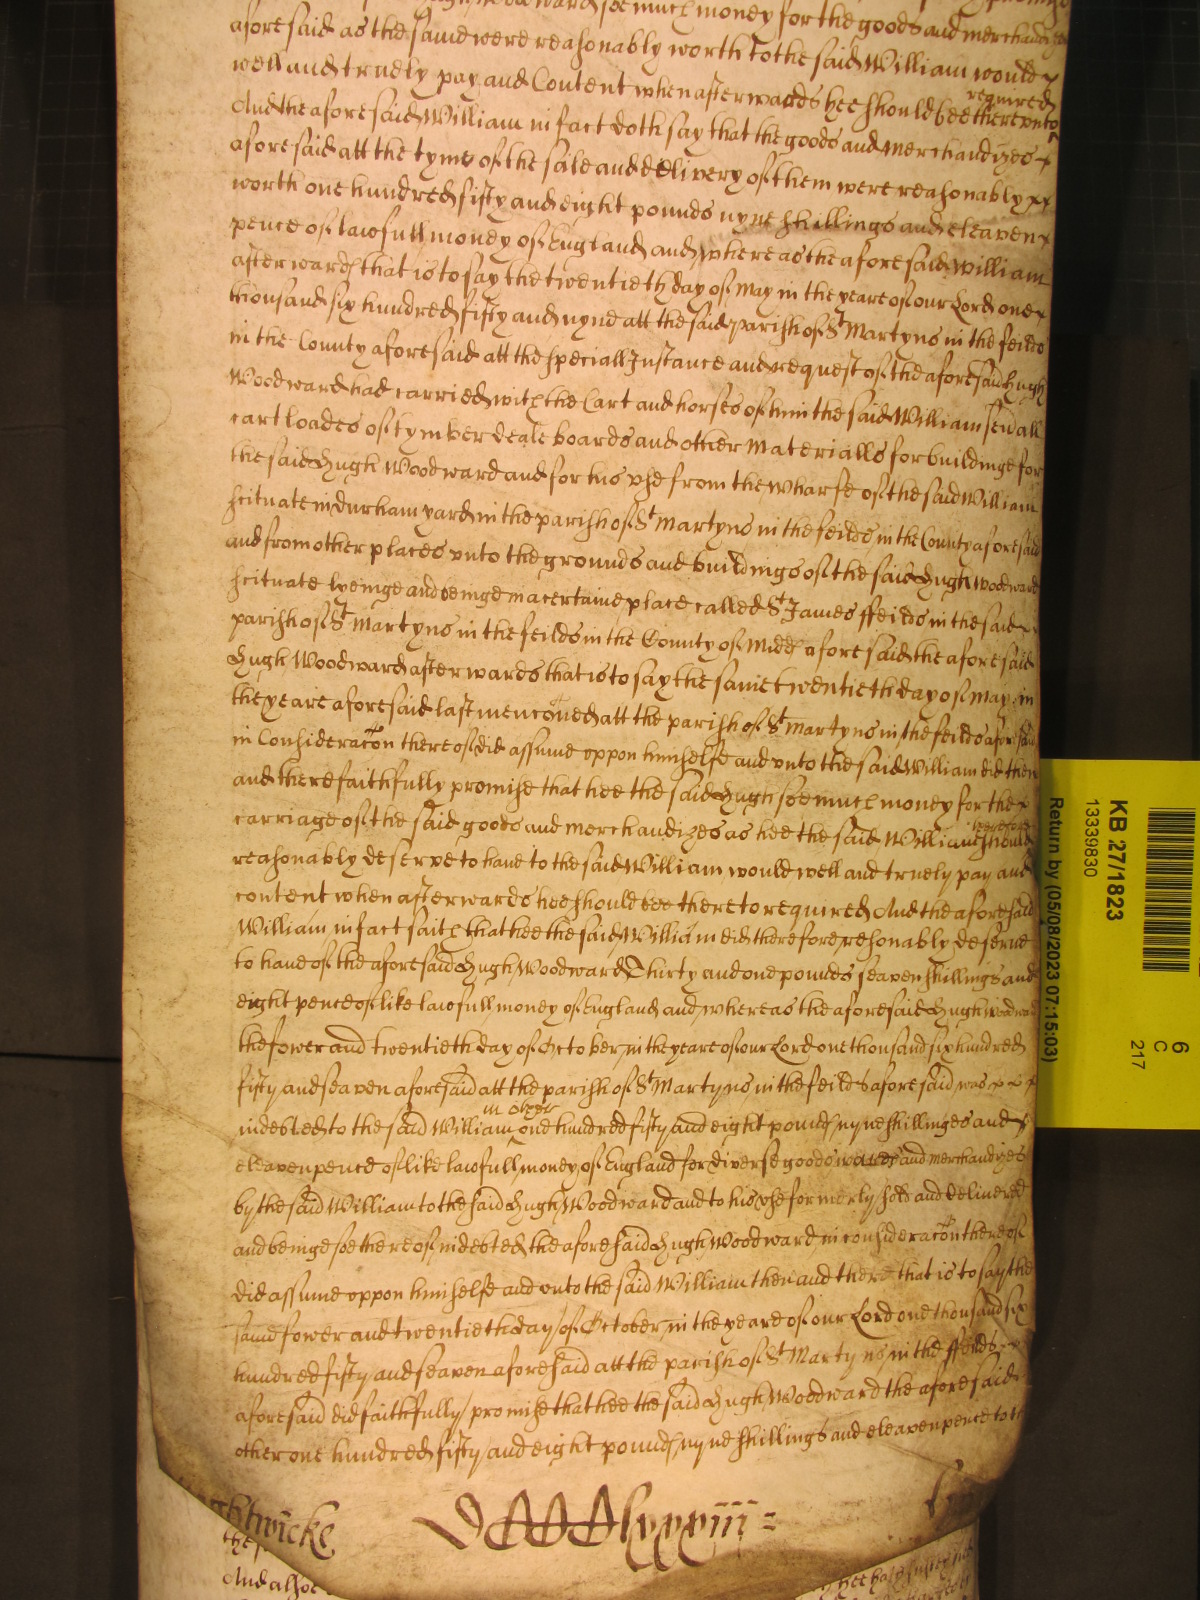 Woodward soe much money for the goods and merchandizes
aforesaid as the same were reasonably worth to the said William would
well and truely pay and Content when afterwards hee should bee thereunto
required
And the aforesaid William in fact doth say that the goods and merchandizes
aforesaid att the tyme of the sale and delivery of them were reasonably xx
worth one hundred fifty and eight pounds nyne shillings and eleaven
pence of lawfull money of England and whereas the aforesaid William
afterward that is to say the twentieth day of May in the yeare of our Lord one
thousand six hundred fifty and nyne att the said parish of St Martyns in the feilds
in the County aforesaid att the speciall Instance and request of the aforesaid Hugh
Woodward had carried with the Cart and horses of him the said William send all
cart loades of tymber deale boards and other materialls for buildinge for
the said Hugh Woodward and for his vse from the wharfe of the said William
scituate in durham yard in the parish of St Martyns in the feilds in the County aforesaid
and from other places vnto the grounds and buildings of the said Hugh Woodward
scituate lyeinge and beinge in a certaine place called St James ffeilds in the said
parish of St Martyns in the feilds in the County of Midd aforesaid the aforesaid
Hugh Woodward afterwards that is to say the same twentieth day of May in
the yeare aforesaid last menconed att the parish of St Martyns in the feilds aforesaid
in Consideracon thereof did assume vppon himselfe and vnto the said William did then
and there faithfully promise that hee the said Hugh soe much money for the
carriage of the said goods and merchandizes as hee the said William should
therefore
reasonably deserve to have to the said William would well and truely pay and
content when afterwards hee should bee thereto required And the aforesaid
William in fact saith that hee the said William did therefore reasonably deserve
to have of the aforesaid Hugh Woodward Thirty and one pounds seaven shillings and
eight pence of like lawfull money of England and whereas the aforesaid Hugh Woodward
the fower and twentieth day of October in the yeare of our Lord one thousand six hundred
fifty and seaven aforesaid att the parish of St Martyns in the feilds aforesaid was x x x
in other
indebted to the said William one hundred fifty and eight pounds nyne shillinges and
eleaven pence of like lawfull money of England for diverse goods wares and merchandizes
by the said William to the said Hugh Woodward and to his vse formerly sold and delivered
and beinge soe thereof indebted the aforesaid Hugh Woodward in consideracon thereof
did assume vppon himselfe and vnto the said William then and there that is to say the
same fower and twentieth day of October in the yeare of our Lord one thousand six
hundred fifty and seaven aforesaid att the parish of St Martyns in the ffeilds
aforesaid did faithfully promise that hee the said Hugh Woodward the aforesaid
other one hundred fifty and eight pounds nyne shillings and eleaven pence to
htwicke
the
And alsoe
KB 27/1823
13339830
Return by (05/08/2023 07:15:03)
6
C
217